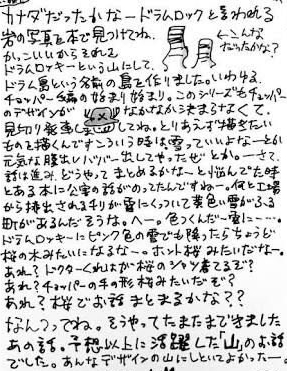 カナダだったかなードラムロックと言われる
岩の写真を本で見つけてね。
←こんな
だったかな?
かっこいいからそれを
ドラムロッキーという山にして、
ドラム島という名前の島を作りました。いわゆる、
チョッパー編の始まり始まり。このシリーズもチョッパー
のデザインがなかなか決まらなくて、
見切り発車してね。とりあえず描きたい
ものを描くんですこういう時は。雪っていいよなーとか
元気な腹出しババー出してやったぜとかーーさて、
話は進み、どうやってまとめるかなーと悩んでた時
とある本に公害の話がのってたんですねー。何と工場
から排出されるチリが雪にくっついて黄色い雪がふる
町があるんだそうな。へー。色つくんだー雪に……。
ドラムロッキーにピンク色の雪でも降ったらちょうど
桜の木みたいになるなー。ホント桜みたいだなー。
あれ?ドクターくれはが桜のシャツ着てるぞ?
あれ?チョッパーの手の形桜みたいだぞ?
あれ?桜でお話まとまるかな??
なんつってね。そうやってたまたまできました
あの話。予想以上に活躍した「山」のお話
でした。あんなデザインの山にしといてよかったー。